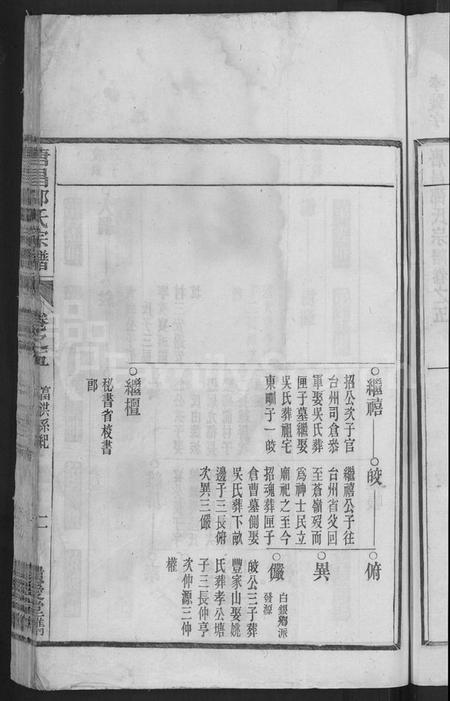 唐昌邵氏宗譜
卷之五
富洪孫紀
二
繼禧
招公次子官
台州司倉叅
軍娶吳氏葬
匣子墓繼娶
吳氏葬祖宅
東畔子一皎
皎
繼禧公子往
台州省父回
至蒼嶺歿而
為神士民立
廟祀之至今
招魂葬匣子
倉曹墓側娶
吳氏葬下畝
邊子三長俯
次異三儼
俯
異
儼
白銀鄉派
發源
皎公三子葬
豐家山娶姚
氏葬孝公塘
子三長仲亨
次仲源三仲
權
繼壇
秘書省校書
郎